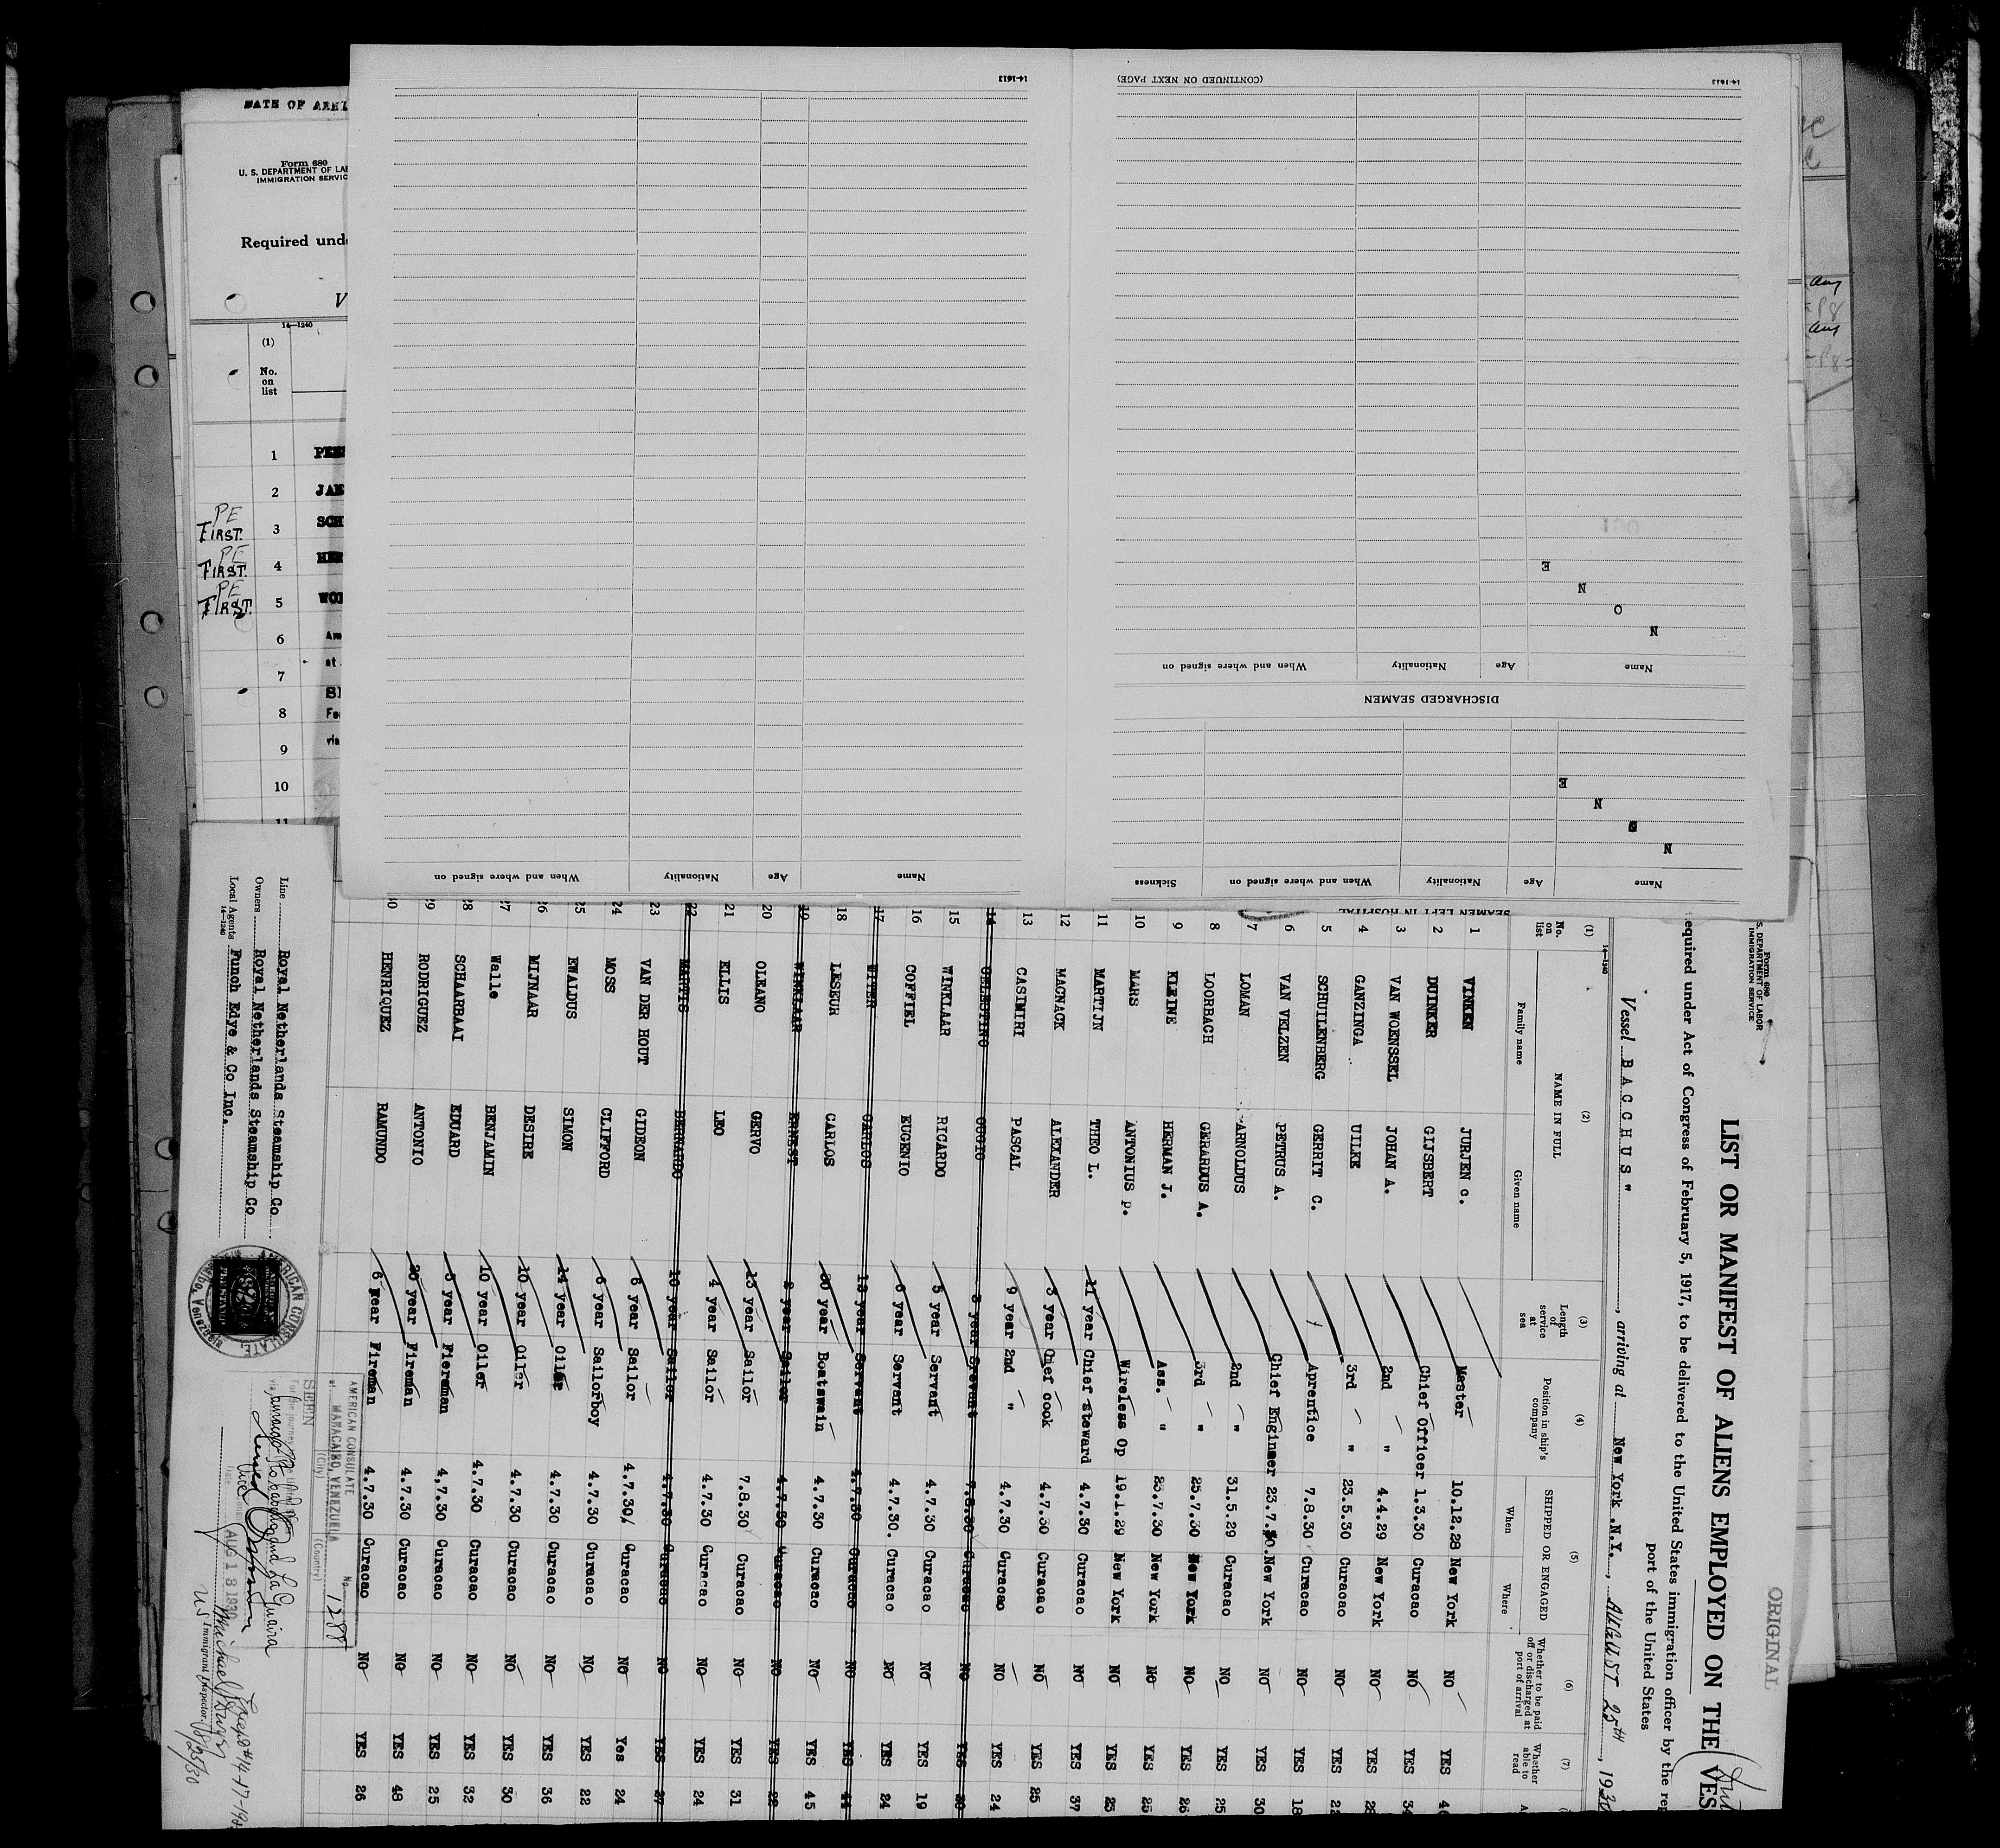 DATE OF
Form 680
U. S. DEPARTMENT OF
IMMIGRATION
Required
14-1240
(1)
No.
on
list
1
2
PE
FIRST. 3
PE
FIRST. 4
PE
FIRST. 5
6
at
7
8
9
via
10
11
14-1613
14-1613
(CONTINUED ON NEXT PAGE)
E
N
O
N
Name
Age
Nationality
When and where signed on
DISCHARGED SEAMEN
E
N
N
Name
Age
Nationality
When and where signed on
Sickness
Name
Age
Nationality
When and where signed on
SEAMEN LEFT IN HOSPITAL
ORIGINAL
Form 680
S. DEPARTMENT OF LABOR
IMMIGRATION SERVICE
LIST OR MANIFEST OF ALIENS EMPLOYED ON THE
equired under Act of Congress of February 5, 1917, to be delivered to the United States immigration officer by the rep
port of the United States
Vessel BACCHUS" , arriving at New York .N.Y., AUGUST 25TH, 1930
14-1240
(1) (2) (3) (4) (5) (6) (7)
No. on list
NAME IN FULL
Family name
Given name
Length of service at sea
Position in ship's company
SHIPPED OR ENGAGED
When
Where
Whether to be paid off or discharged at port of arrival
Whether able to read
1 VINKEN JURJEN C. Master 10.12.28 New York NO YES
2 DUINKER GIJSBERT Chief Officer 1.3.30 Curacao NO YES
3 VAN WOENSSEL JOHAN A. 2nd " 4.4.29 New York NO YES
4 GANDINGA UILKE 3rd " 23.5.30 Curacao NO YES
5 SCHUILENBERG GERRIT C. Aprentice 7.8.30 Curacao NO YES 18
6 VAN VELZEN PETRUS A. Chief Engineer 23.7.30. New York NO YES 30
7 LOMAN ARNOLDUS 2nd " 31.5.29 Curacao NO YES 25
8 LOORBACH GERARDUS A. 3rd " 25.7.30 New York NO YES 26
9 KLEINE HERMAN J. Ass. " 23.7.30 New York NO YES 25
10 MARS ANTONIUS P. Wireless Op 19.1.29 New York NO YES 23
11 MARTIJN THEO L. 11 year Chief steward 4.7.30 Curacao NO YES 37
12 MAGNACK ALEXANDER 3 year Chief cook 4.7.30 Curacao NO YES 25
13 CASIMIRI PASCAL 9 year 2nd " 4.7.30 Curacao NO YES 24
14 CELESTINO 3 year 7.8.30 Curacao NO YES
15 WINKLAAR RICARDO 5 year Servant 4.7.30 Curacao NO YES 19
16 COFFIEL EUGENIO 6 year Servant 4.7.30. Curacao NO YES 24
17 WITER CARLOS 13 year Servant 4.7.30 Curacao NO YES 44
18 LESEUR CARLOS 30 year Boatswain 4.7.30 Curacao NO YES 45
19 WINKLAAR ERNEST 2 year Sailor 4.7.30 Curacao NO YES
20 OLEANO GERVO 13 year Sailor 7.8.30 Curacao NO YES 31
21 ELLIS LEO 4 year Sailor 4.7.30 Curacao NO YES 24
22 MARTIS BERNARDO 10 year Sailor 4.7.30 Curacao NO YES 27
23 VAN DER HOUT GIDEON 6 year Sailor 4.7.30 Curacao NO Yes 24
24 MOSS CLIFFORD 6 year Sailorboy 4.7.30 Curacao NO YES 22
25 EWALDUS SIMON 14 year Oiler 4.7.30 Curacao NO YES 36
26 MIJNAAR DESIRE 10 year Oiler 4.7.30 Curacao NO YES 30
27 Walle BENJAMIN 10 year Oiler 4.7.30 Curacao NO YES 32
28 SCHAARBAAI EDUARD 5 year Fiereman 4.7.30 Curacao NO YES 25
29 RODRIGUEZ ANTONIO 26 year Fireman 4.7.30 Curacao NO YES 48
30 HENRIQUEZ RAMUNDO 6 year Fireman 4.7.30 Curacao NO YES 26
Line Royal Netherlands Steamship Co
Owners Royal Netherlands Steamship Co
Local Agents Funch Edye & Co Inc.
14-1240
AMERICAN CONSULATE
at MARACAIBO, VENEZUELA
(City) (Country)
No. 1288
SEEN
For the journey to the United States
via Curacao and La Guaira
Vice Consul
AUG 18 1930
Immigrant Inspector.
8/25/30